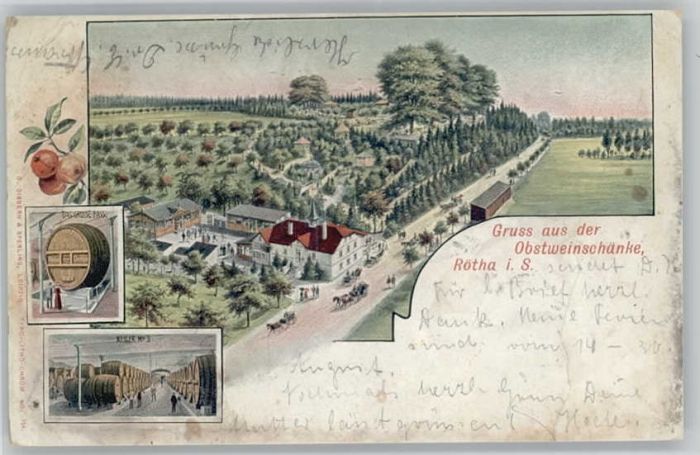 Herzliche Grüsse
DAS GROSSE FASS
KELLER No 3
Gruss aus der
Obstweinschänke,
Rötha i. S. sendet D.
Für l. Brief herzl.
Dank. Meine Ferien
sind vom 14 - 30.
August.
Nochmals herzl. Gruss Deine
Mutter lässt grüssen!